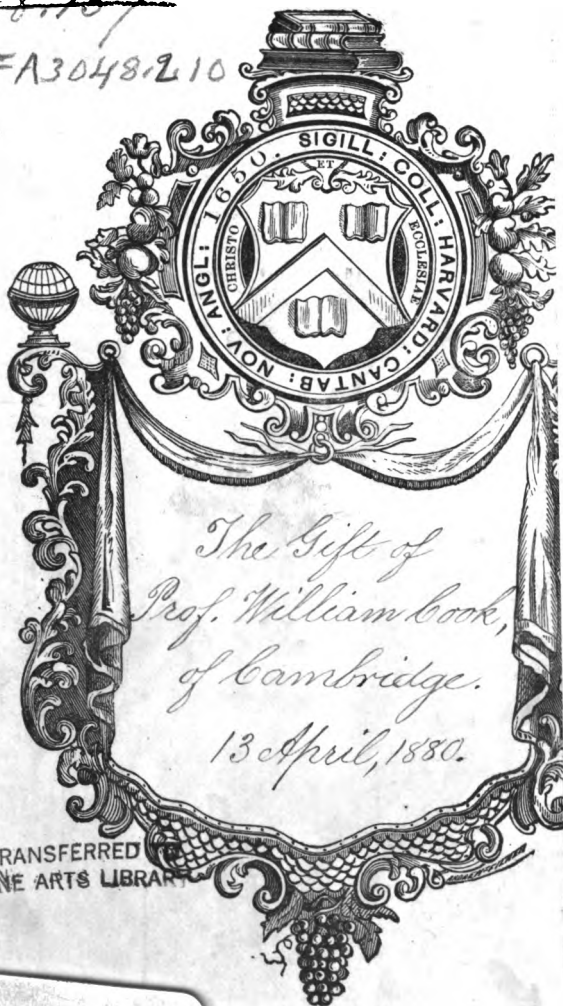 FA3048.210
SIGILL: COLL: HARVARD: CANTAB: NOV: ANGL: 1650.
ET
CHRISTO
ECCLESIAE
The Gift of
Prof. William Cook,
of Cambridge.
13 April, 1880.
TRANSFERRED
FINE ARTS LIBRARY